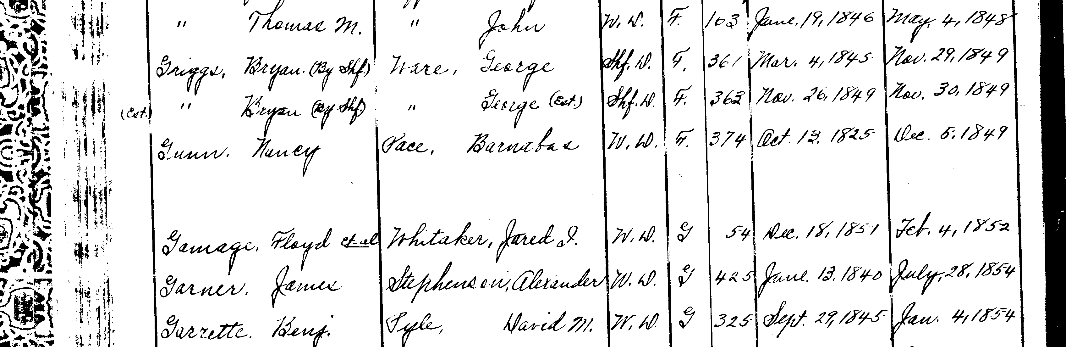 " Thomas M. " John W. D. F. 163 June 19, 1846 May 4, 1848
Griggs, Bryan (By Shf) Ware, George Shf. D. F. 361 Mar. 4, 1845 Nov. 29, 1849
(Est.) " Bryan (By Shf) " George (Est.) Shf. D. F. 363 Nov. 26, 1849 Nov. 30, 1849
Gunn, Nancy Pace, Barnabas W. D. F. 374 Oct. 12, 1825 Dec. 5, 1849
Gamage, Floyd et al Whitaker, Jared I. W. D. G 54 Dec. 18, 1851 Feb. 4, 1852
Garner, James Stephenson, Alexander W. D. G 425 June 13, 1840 July, 28, 1854
Garrette, Benj. Lyle, David M. W. D. G 325 Sept. 29, 1845 Jan. 4, 1854